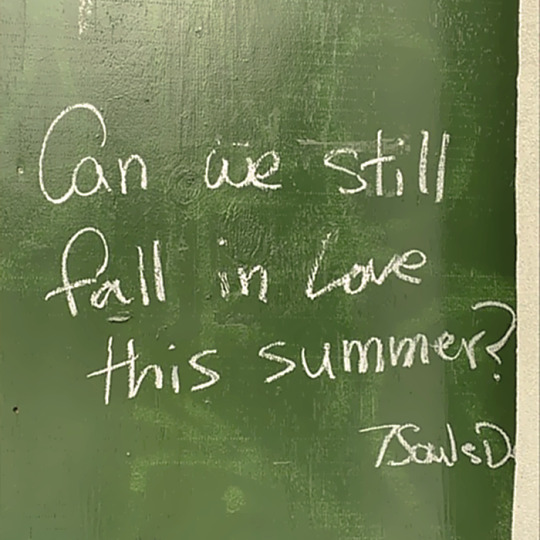 Can we still
fall in Love
this summer?
7SoulsD